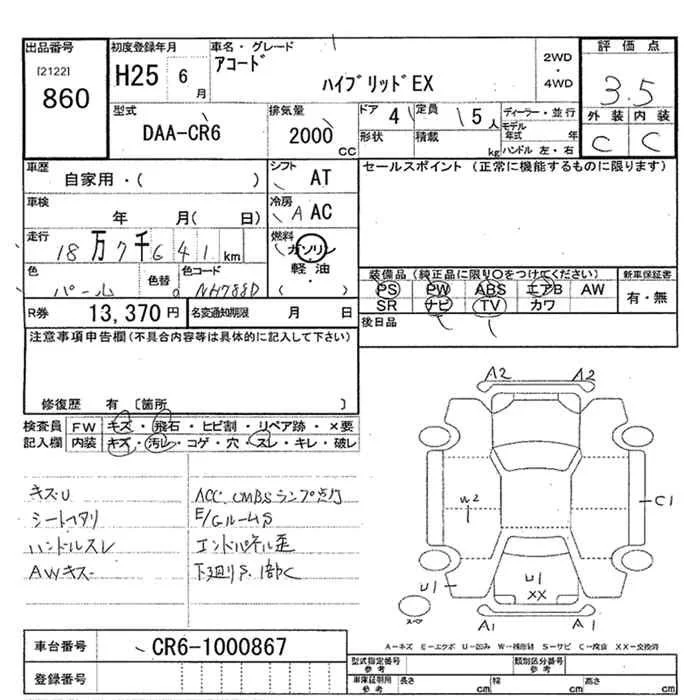 出品番号
[2122]
860
初度登録年月
H25 6月
車名・グレード
アコード
ハイブリッドEX
2WD
・
4WD
評価点
3.5
外装 内装
C C
型式
DAA-CR6
排気量
2000
CC
ドア 4
定員 5人
形状
積載 kg
ディーラー・並行
モデル年式 年
ハンドル 左・右
車歴
自家用・( )
シフト AT
車検
年 月( 日)
冷房 A AC
走行
18万7千641km
燃料
ガソリン
軽油
( ・ )
色
パール
色替
色コード
NH788D
R券 13,370円
名変通知期限 月 日
セールスポイント (正常に機能するものに限ります)
装備品(純正品に限り○をつけてください)
PS PW ABS エアB AW
SR ナビ TV カワ
新車保証書
有・無
後日品
注意事項申告欄(不具合内容等は具体的に記入して下さい)
修復歴 有 〔箇所 〕
検査員
記入欄
FW キズ・飛石・ヒビ割・リペア跡・×要
内装 キズ・汚レ・コゲ・穴・スレ・キレ・破レ
キズU
シートヘタリ
ハンドルスレ
AWキズ
ACC CMBSランプ点灯
E/GルームS
エンドパネル歪
下廻りS.1部C
A2 A2
W2
C1
U1
U1
XX
A1 A1
スペア
A-キズ E-エクボ U-凹み W-補修跡 S-サビ C-腐食 XX-交換済
車台番号 CR6-1000867
登録番号
型式指定番号
参考
類別区分番号
参考
車庫証明用
参考
長さ cm
幅 cm
高さ cm